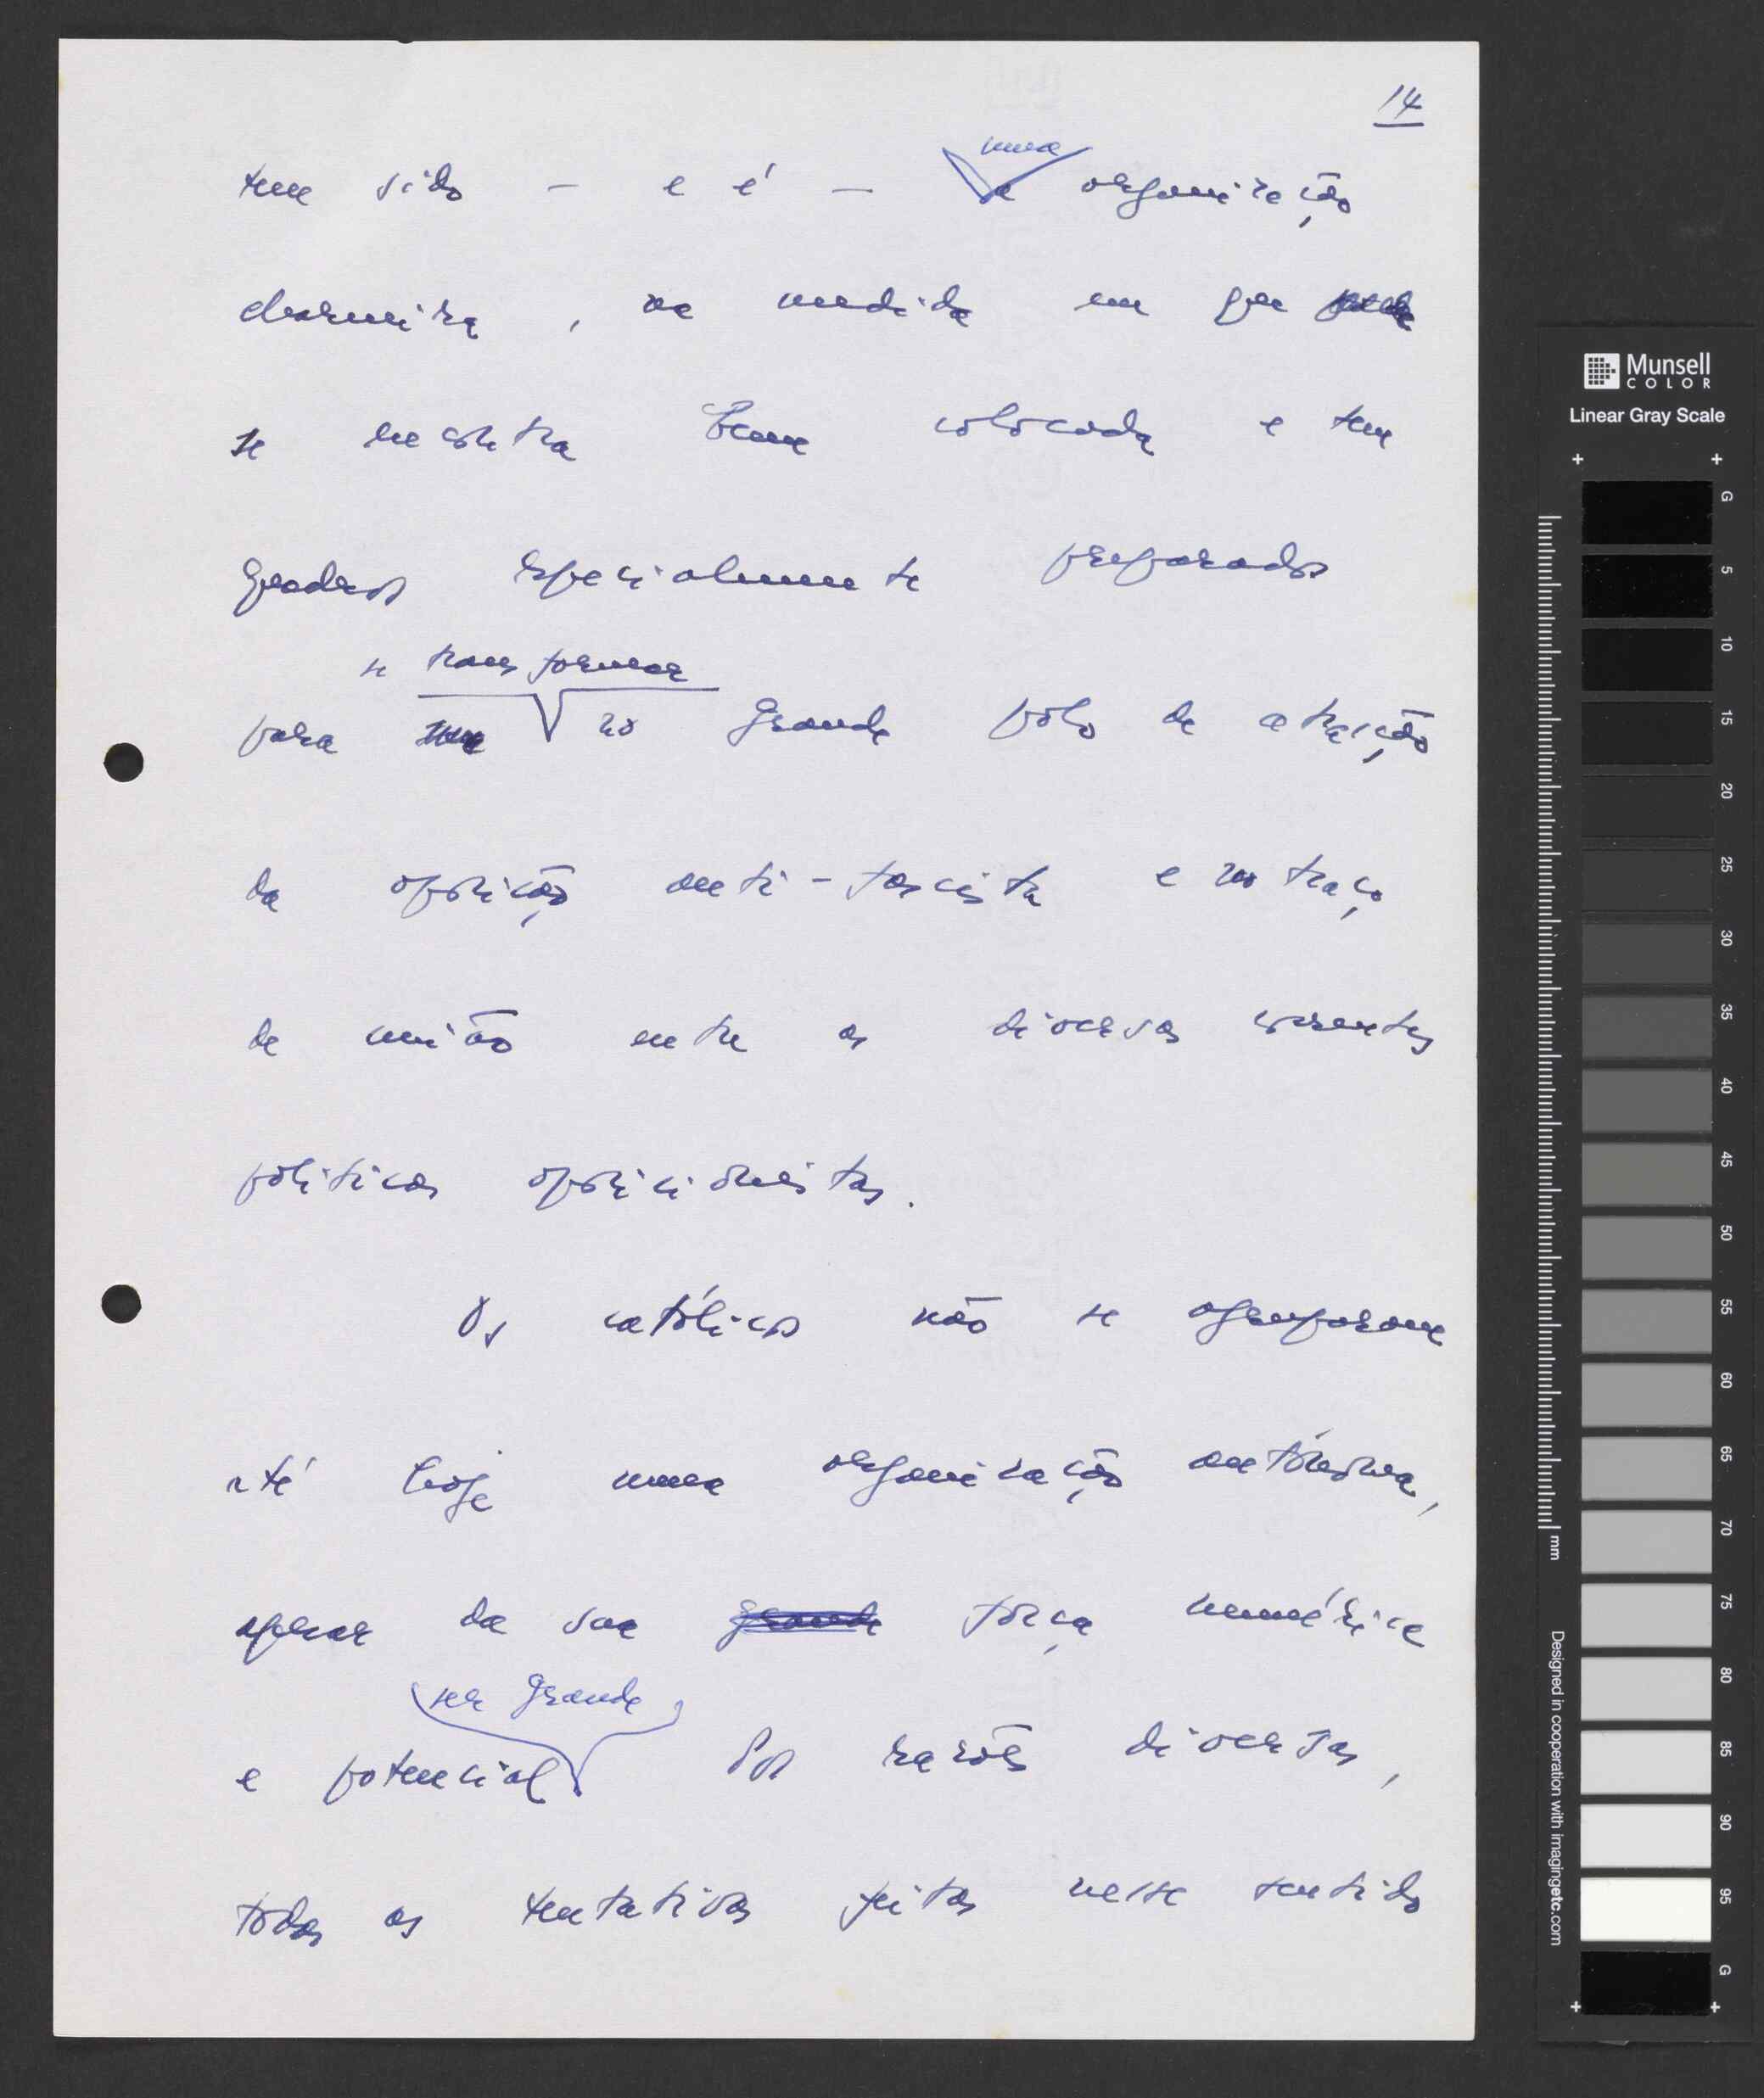 14
uma
tem sido — e é — a organização
charneira, na medida em que
se encontra bem colocada e tem
quadros especialmente preparados
se transformar
para no grande polo de atracção
da oposição anti-fascista e no traço
de união entre as diversas correntes
políticas oposicionistas.
Os católicos não se agruparam
até hoje numa organização autónoma,
apesar da sua grande força numérica
ser grande
e potencial Por razões diversas,
todas as tentativas feitas nesse sentido
Munsell
COLOR
Linear Gray Scale
G
5
10
15
20
25
30
35
40
45
50
55
60
65
70
75
80
85
90
95
G
mm
Designed in cooperation with imagingetc.com